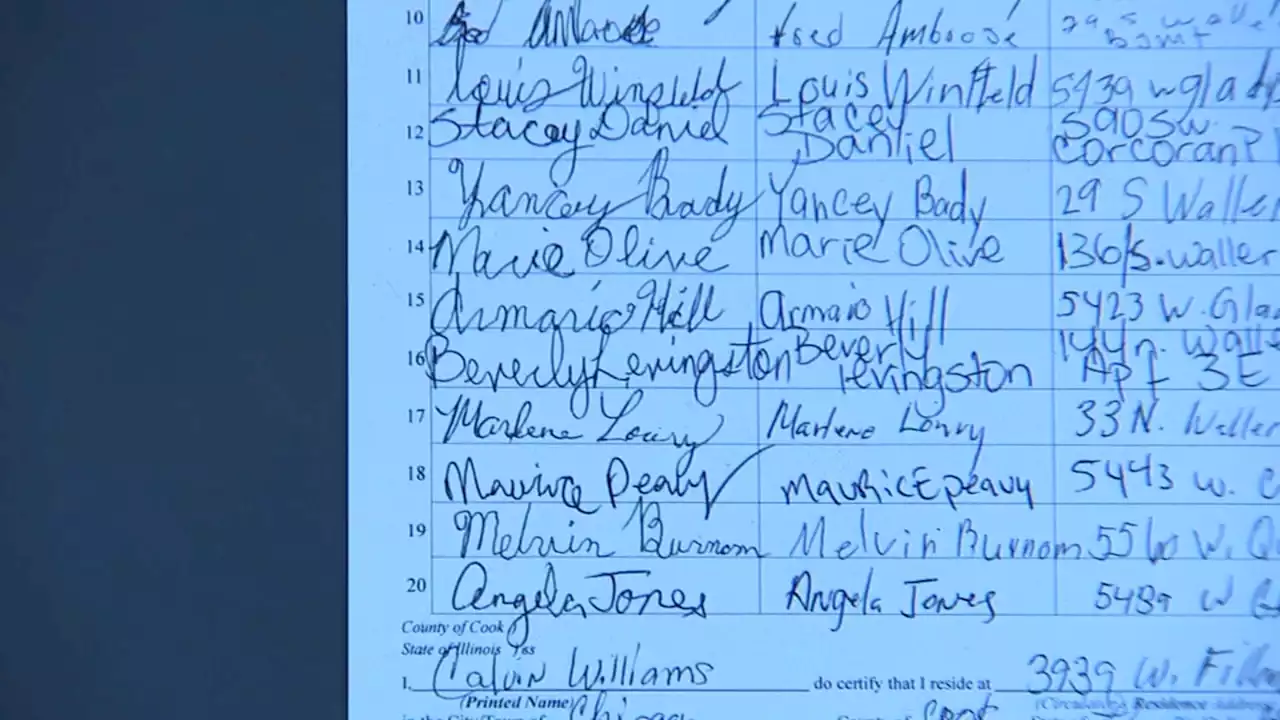 10 Fred Ambrose 29 S Waller Bsmt
11 Louis Winfield Louis Winfield 5439 w glady
12 Stacey Daniel Stacey Daniel 5905 w. Corcoran Pl
13 Yancey Bady Yancey Bady 29 S Waller
14 Marie Olive Marie Olive 136 S. waller
15 Armario Hill Armaio Hill 5423 W. Gla
16 Beverly Levingston Beverly levingston 144 n. Walle APT 3E
17 Marlene Lowry Marlene Lowry 33 N. Waller
18 Maurice Peavy mauricE peavy 5443 w.
19 Melvin Burnom Melvin Burnom 5560 W. Q
20 Angela Jones Angela Jones 5489 W
County of Cook
State of Illinois ss
I, Calvin Williams do certify that I reside at 3939 W. Fill
(Printed Name) (Circulator's Residence Address
in the City/Town of Chicago County of Cook